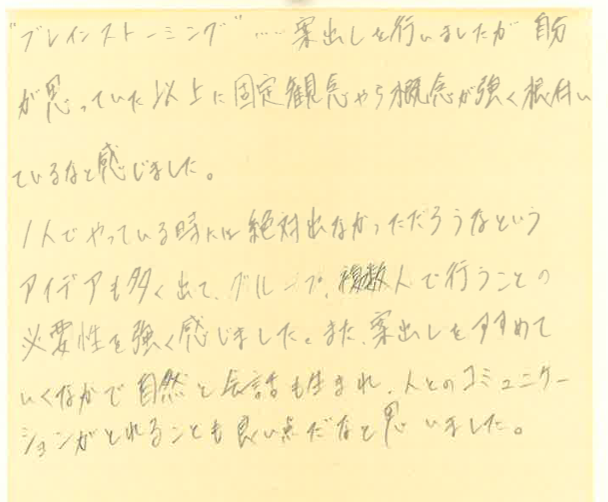 "ブレインストーミング"……案出しを行いましたが 自分
が思っていた以上に固定観念やら概念が強く根付い
ているなと感じました。
1人でやっている時には絶対出なかっただろうなという
アイデアも多く出て、グループ、複数人で行うことの
必要性を強く感じました。また、案出しをすすめて
いくなかで自然と会話も生まれ、人とのコミュニケー
ションがとれることも良い点だなと思いました。